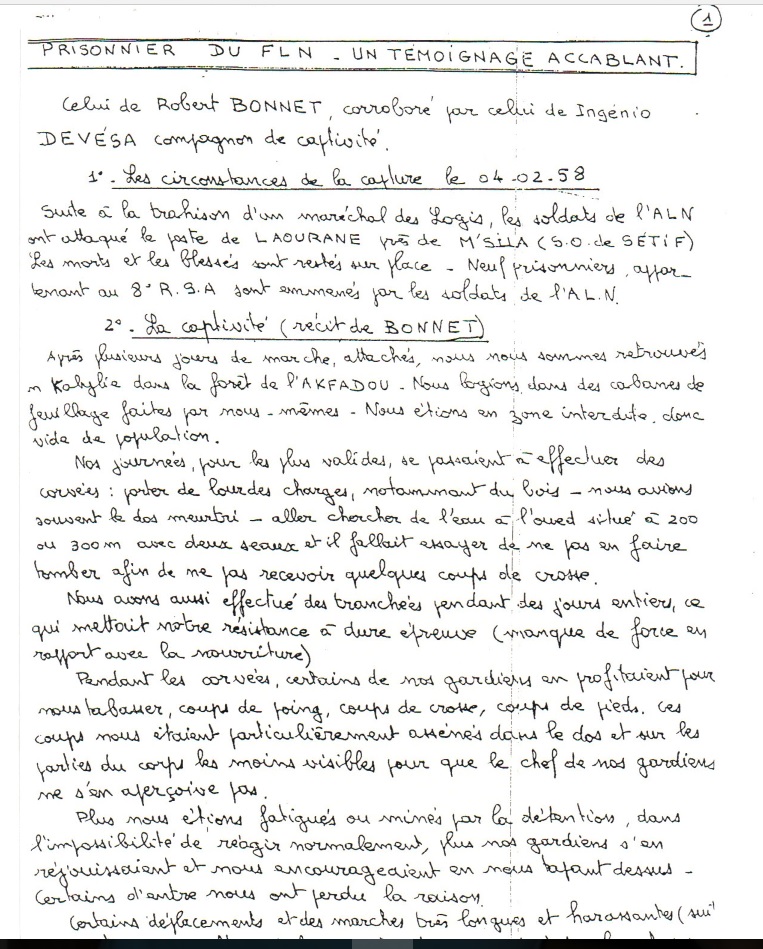 1
PRISONNIER DU FLN - UN TÉMOIGNAGE ACCABLANT.
Celui de Robert BONNET, corroboré par celui de Ingénio
DEVÉSA compagnon de captivité.
1° - Les circonstances de la capture le 04-02-58
Suite à la trahison d'un maréchal des Logis, les soldats de l'ALN
ont attaqué le poste de LAOURANE près de M'SILA (S.O. de SÉTIF)
Les morts et les blessés sont restés sur place - Neuf prisonniers, appar-
tenant au 8° R.S.A sont emmenés par les soldats de l'A.L.N.
2° - La captivité (récit de BONNET)
Après plusieurs jours de marche, attachés, nous nous sommes retrouvés
n Kabylie dans la forêt de l'AKFADOU - Nous logions dans des cabanes de
feuillage faites par nous-mêmes - Nous étions en zone interdite, donc
vide de population.
Nos journées, pour les plus valides, se passaient à effectuer des
corvées : porter de lourdes charges, notamment du bois - nous avions
souvent le dos meurtri - aller chercher de l'eau à l'oued situé à 200
ou 300m avec deux seaux et il fallait essayer de ne pas en faire
tomber afin de ne pas recevoir quelques coups de crosse.
Nous avons aussi effectué des tranchées pendant des jours entiers, ce
qui mettait notre résistance à dure épreuve (manque de force en
rapport avec la nourriture)
Pendant les corvées, certains de nos gardiens en profitaient pour
nous tabasser, coups de poing, coups de crosse, coups de pieds. Ces
coups nous étaient particulièrement assénés dans le dos et sur les
parties du corps les moins visibles pour que le chef de nos gardiens
ne s'en aperçoive pas.
Plus nous étions fatigués ou minés par la détention, dans
l'impossibilité de réagir normalement, plus nos gardiens s'en
réjouissaient et nous encourageaient en nous tapant dessus -
Certains d'entre nous ont perdu la raison.
Certains déplacements et des marches très longues et harassantes (suit